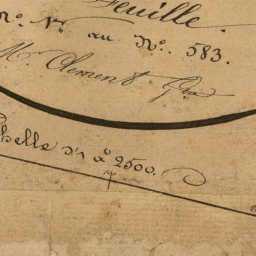 Feuille.
N.º 1.er au N.º 583.
Mr Clement
Echelle d'1 à 2500.